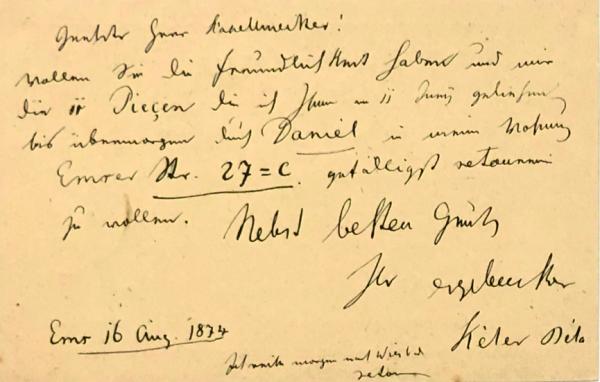 Geehrter Herr Kapellmeister!
wollen Sie die Freundlichkeit haben und mir
die 11 Pieçen die ich Ihnen im Juny geliehen
bis übermorgen durch Daniel in meine Wohnung
Emser Str. 27=C. gefälligst retourniren
zu wollen. Nebst besten Gruß
Ihr ergebenster
Kéler Béla
Ems 16 Aug. 1874
Ich reise morgen nach Wiesbad
retour